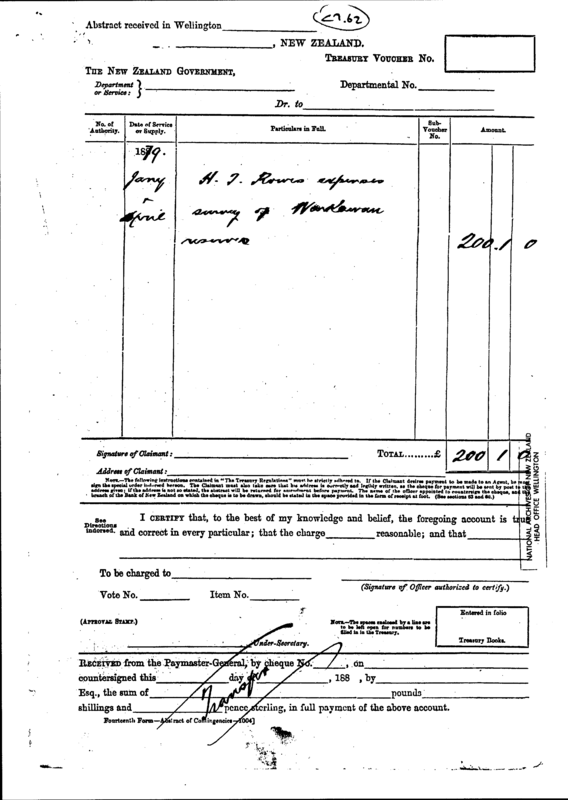 C7.62
Abstract received in Wellington
, NEW ZEALAND.
TREASURY VOUCHER NO.
THE NEW ZEALAND GOVERNMENT,
Department or Service: }
Departmental No.
Dr. to
No. of Authority. Date of Service or Supply. Particulars in Full. Sub-Voucher No. Amount.
1879.
Jany H. T. Rowes expenses
April survey of
reserve 200. 1 0
Signature of Claimant: TOTAL.........£ 200 1 0
Address of Claimant:
NOTE.—The following instructions contained in "The Treasury Regulations" must be strictly adhered to. If the Claimant desires payment to be made to an Agent, he must
sign the special order indorsed hereon. The Claimant must also take care that his address is correctly and legibly written, as the cheque for payment will be sent by post to the
address given; if the address is not so stated, the abstract will be returned for amendment before payment. The name of the officer appointed to countersign the cheque, and the
branch of the Bank of New Zealand on which the cheque is to be drawn, should be stated in the space provided in the form of receipt at foot.
NATIONAL ARCHIVES OF NEW ZEALAND
HEAD OFFICE WELLINGTON
See Directions indorsed.
I CERTIFY that, to the best of my knowledge and belief, the foregoing account is true
and correct in every particular; that the charge reasonable; and that
To be charged to
(Signature of Officer authorized to certify.)
Vote No. Item No.
(APPROVAL STAMP.)
Under-Secretary.
NOTE.—The spaces enclosed by a line are to be left open for numbers to be filled in in the Treasury.
Entered in folio
Treasury Books.
RECEIVED from the Paymaster-General, by cheque No. , on
countersigned this day of , 188 , by
Esq., the sum of pounds
shillings and pence sterling, in full payment of the above account.
Transfer
Fourteenth Form—Abstract of Contingencies—1004]